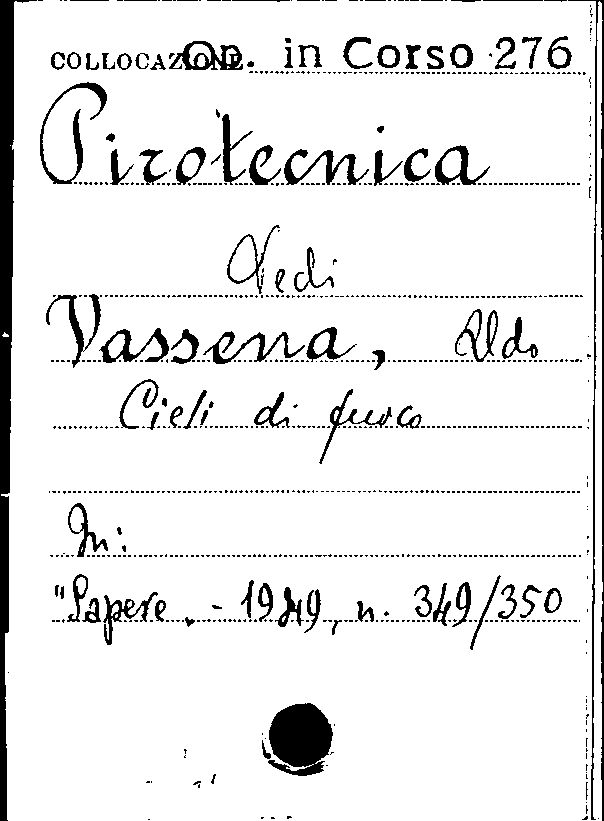 COLLOCAZIONE Op. in Corso 276
Pirotecnica
Vedi
Vassena, Aldo
Cieli di fuoco
In:
"Sapere". - 1949, n. 349/350